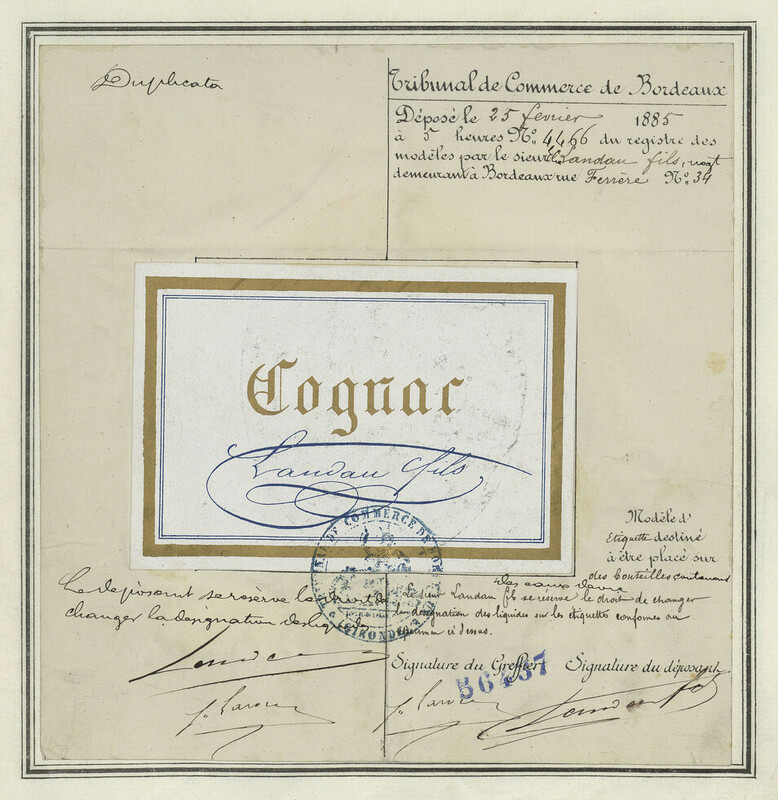 Duplicata
Tribunal de Commerce de Bordeaux
Déposé le 25 fevrier 1885
à 5 heures No. 4,466 du registre des
modèles par le sieur Landau fils, negt
demeurant à Bordeaux rue Ferrère No. 34
Cognac
Landau fils
TRIBUNAL DE COMMERCE DE BORDEAUX
GIRONDE
Modèle d'
Etiquette destiné
à être placé sur
des bouteilles contenant
des eaux de vie
Le déposant se réserve le droit de
changer la désignation des liquides
Le sieur Landau fils se reserve le droit de changer
la désignation des liquides sur les étiquettes conformes au
specimen ci dessus.
Signature du Greffier
Signature du déposant
56437